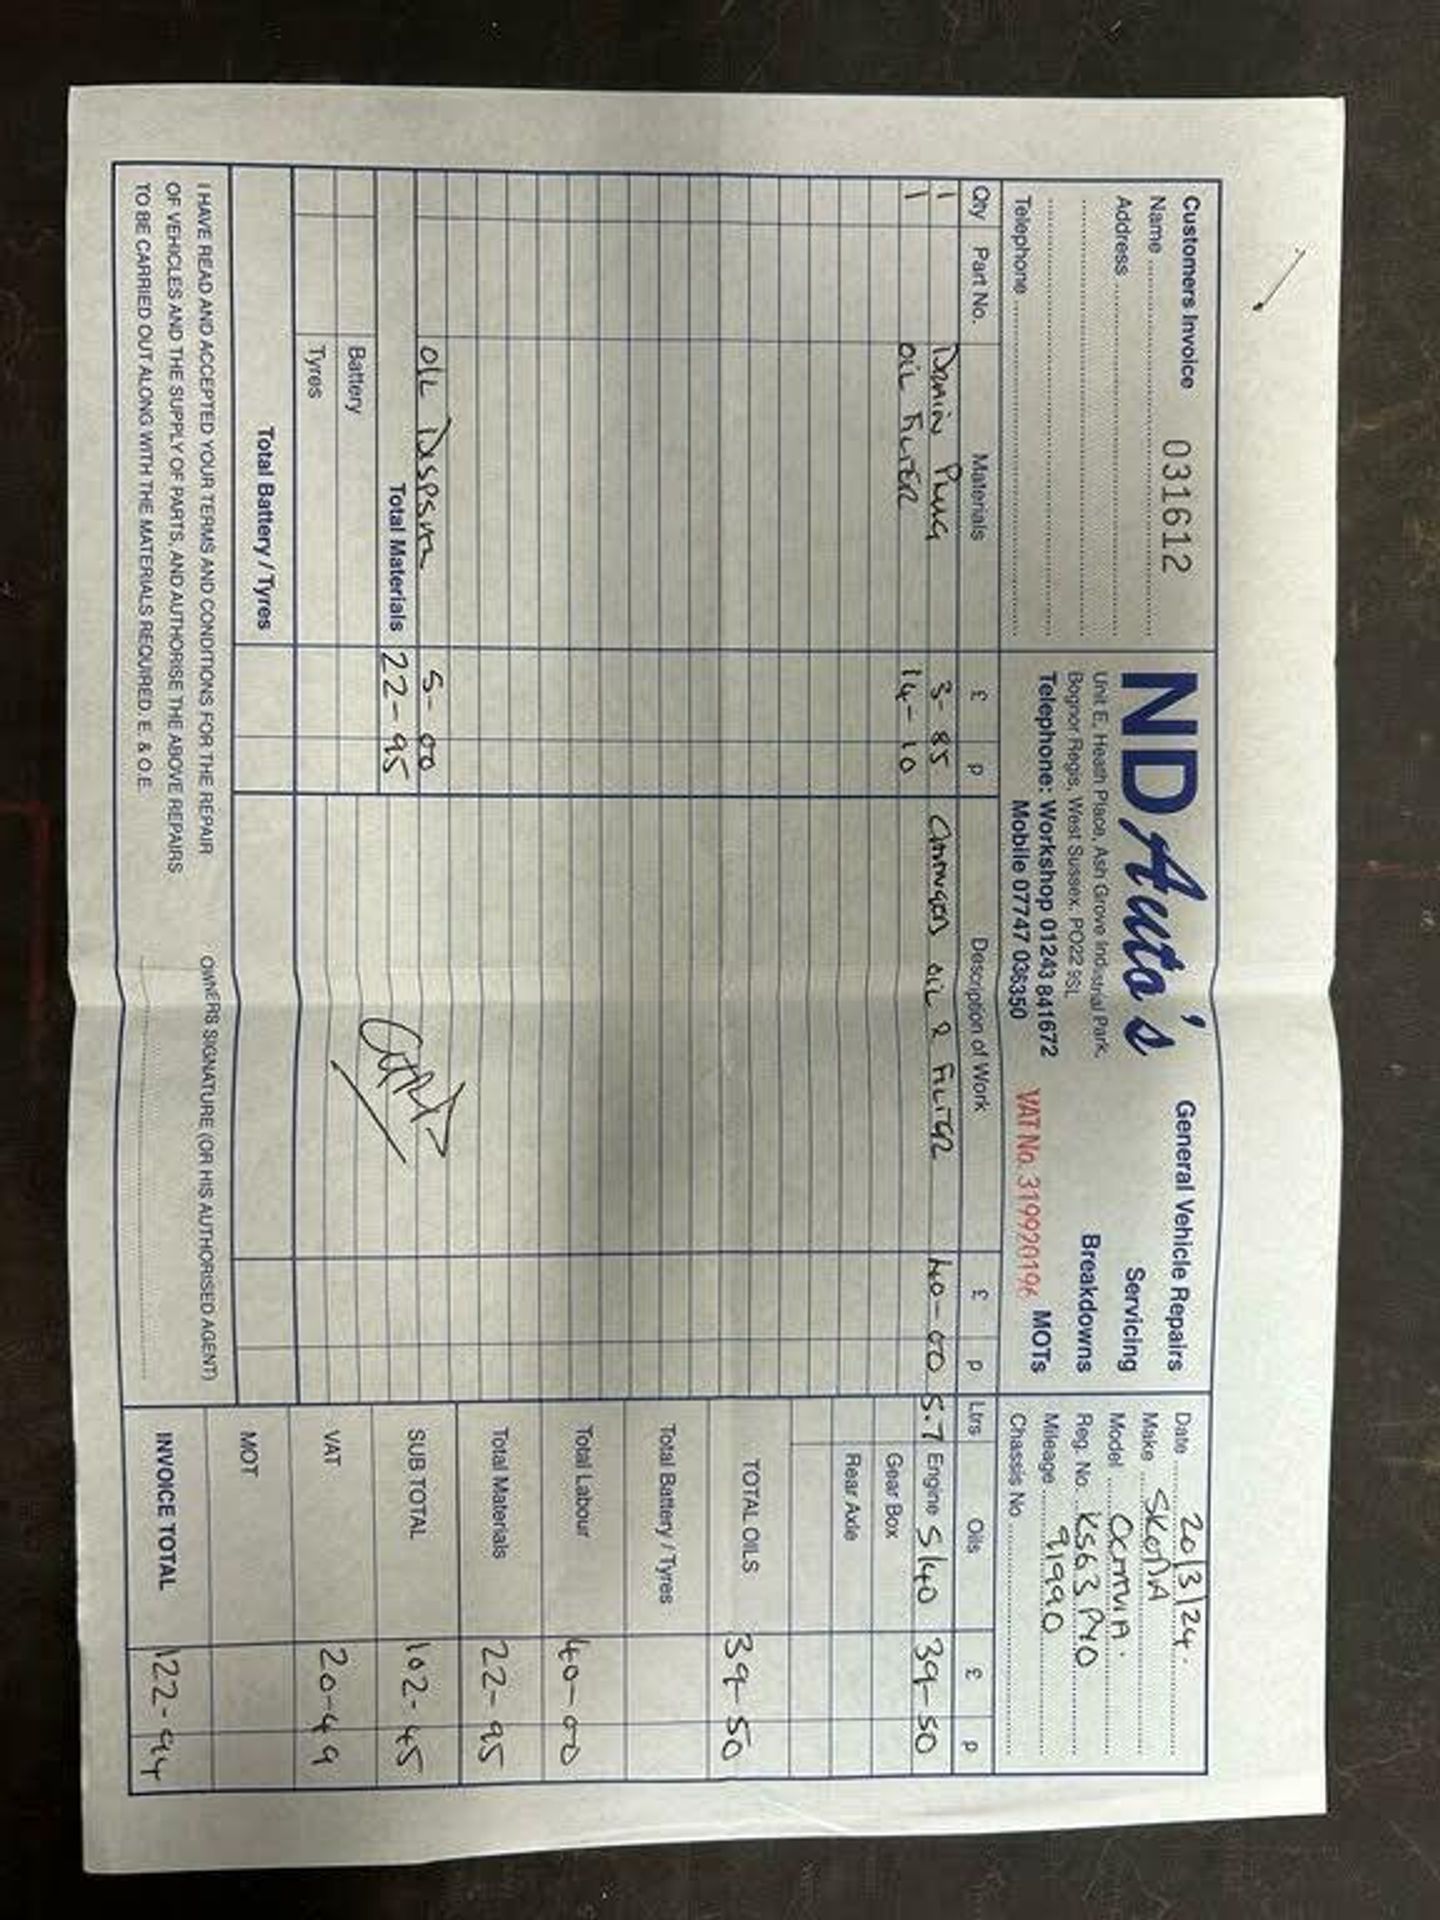 Customers Invoice 031612
Name
Address
Telephone
ND Auto's
Unit E, Heath Place, Ash Grove Industrial Park,
Bognor Regis, West Sussex, PO22 9SL
Telephone: Workshop 01243 841672
Mobile 07747 036350
General Vehicle Repairs
Servicing
Breakdowns
MOTs
VAT No. 319920196
Date 20/3/24
Make SKODA
Model OCTAVIA
Reg. No. KS63 PYO
Mileage 91990
Chassis No
Qty Part No. Materials £ p Description of Work £ p Ltrs Oils £ p
1 DRAIN PLUG 3-85 CHANGED OIL & FILTER 40-00 5.7 Engine 5/40 39-50
1 OIL FILTER 14-10
Gear Box
Rear Axle
TOTAL OILS 39-50
Total Battery / Tyres
Total Labour 40-00
OIL DISPSAL 5-00
Total Materials 22-95
Total Materials 22-95
Battery
SUB TOTAL 102-45
Tyres
VAT 20-49
Total Battery / Tyres
MOT
I HAVE READ AND ACCEPTED YOUR TERMS AND CONDITIONS FOR THE REPAIR
OF VEHICLES AND THE SUPPLY OF PARTS, AND AUTHORISE THE ABOVE REPAIRS
TO BE CARRIED OUT ALONG WITH THE MATERIALS REQUIRED. E. & O.E.
OWNERS SIGNATURE (OR HIS AUTHORISED AGENT)
INVOICE TOTAL 122-94